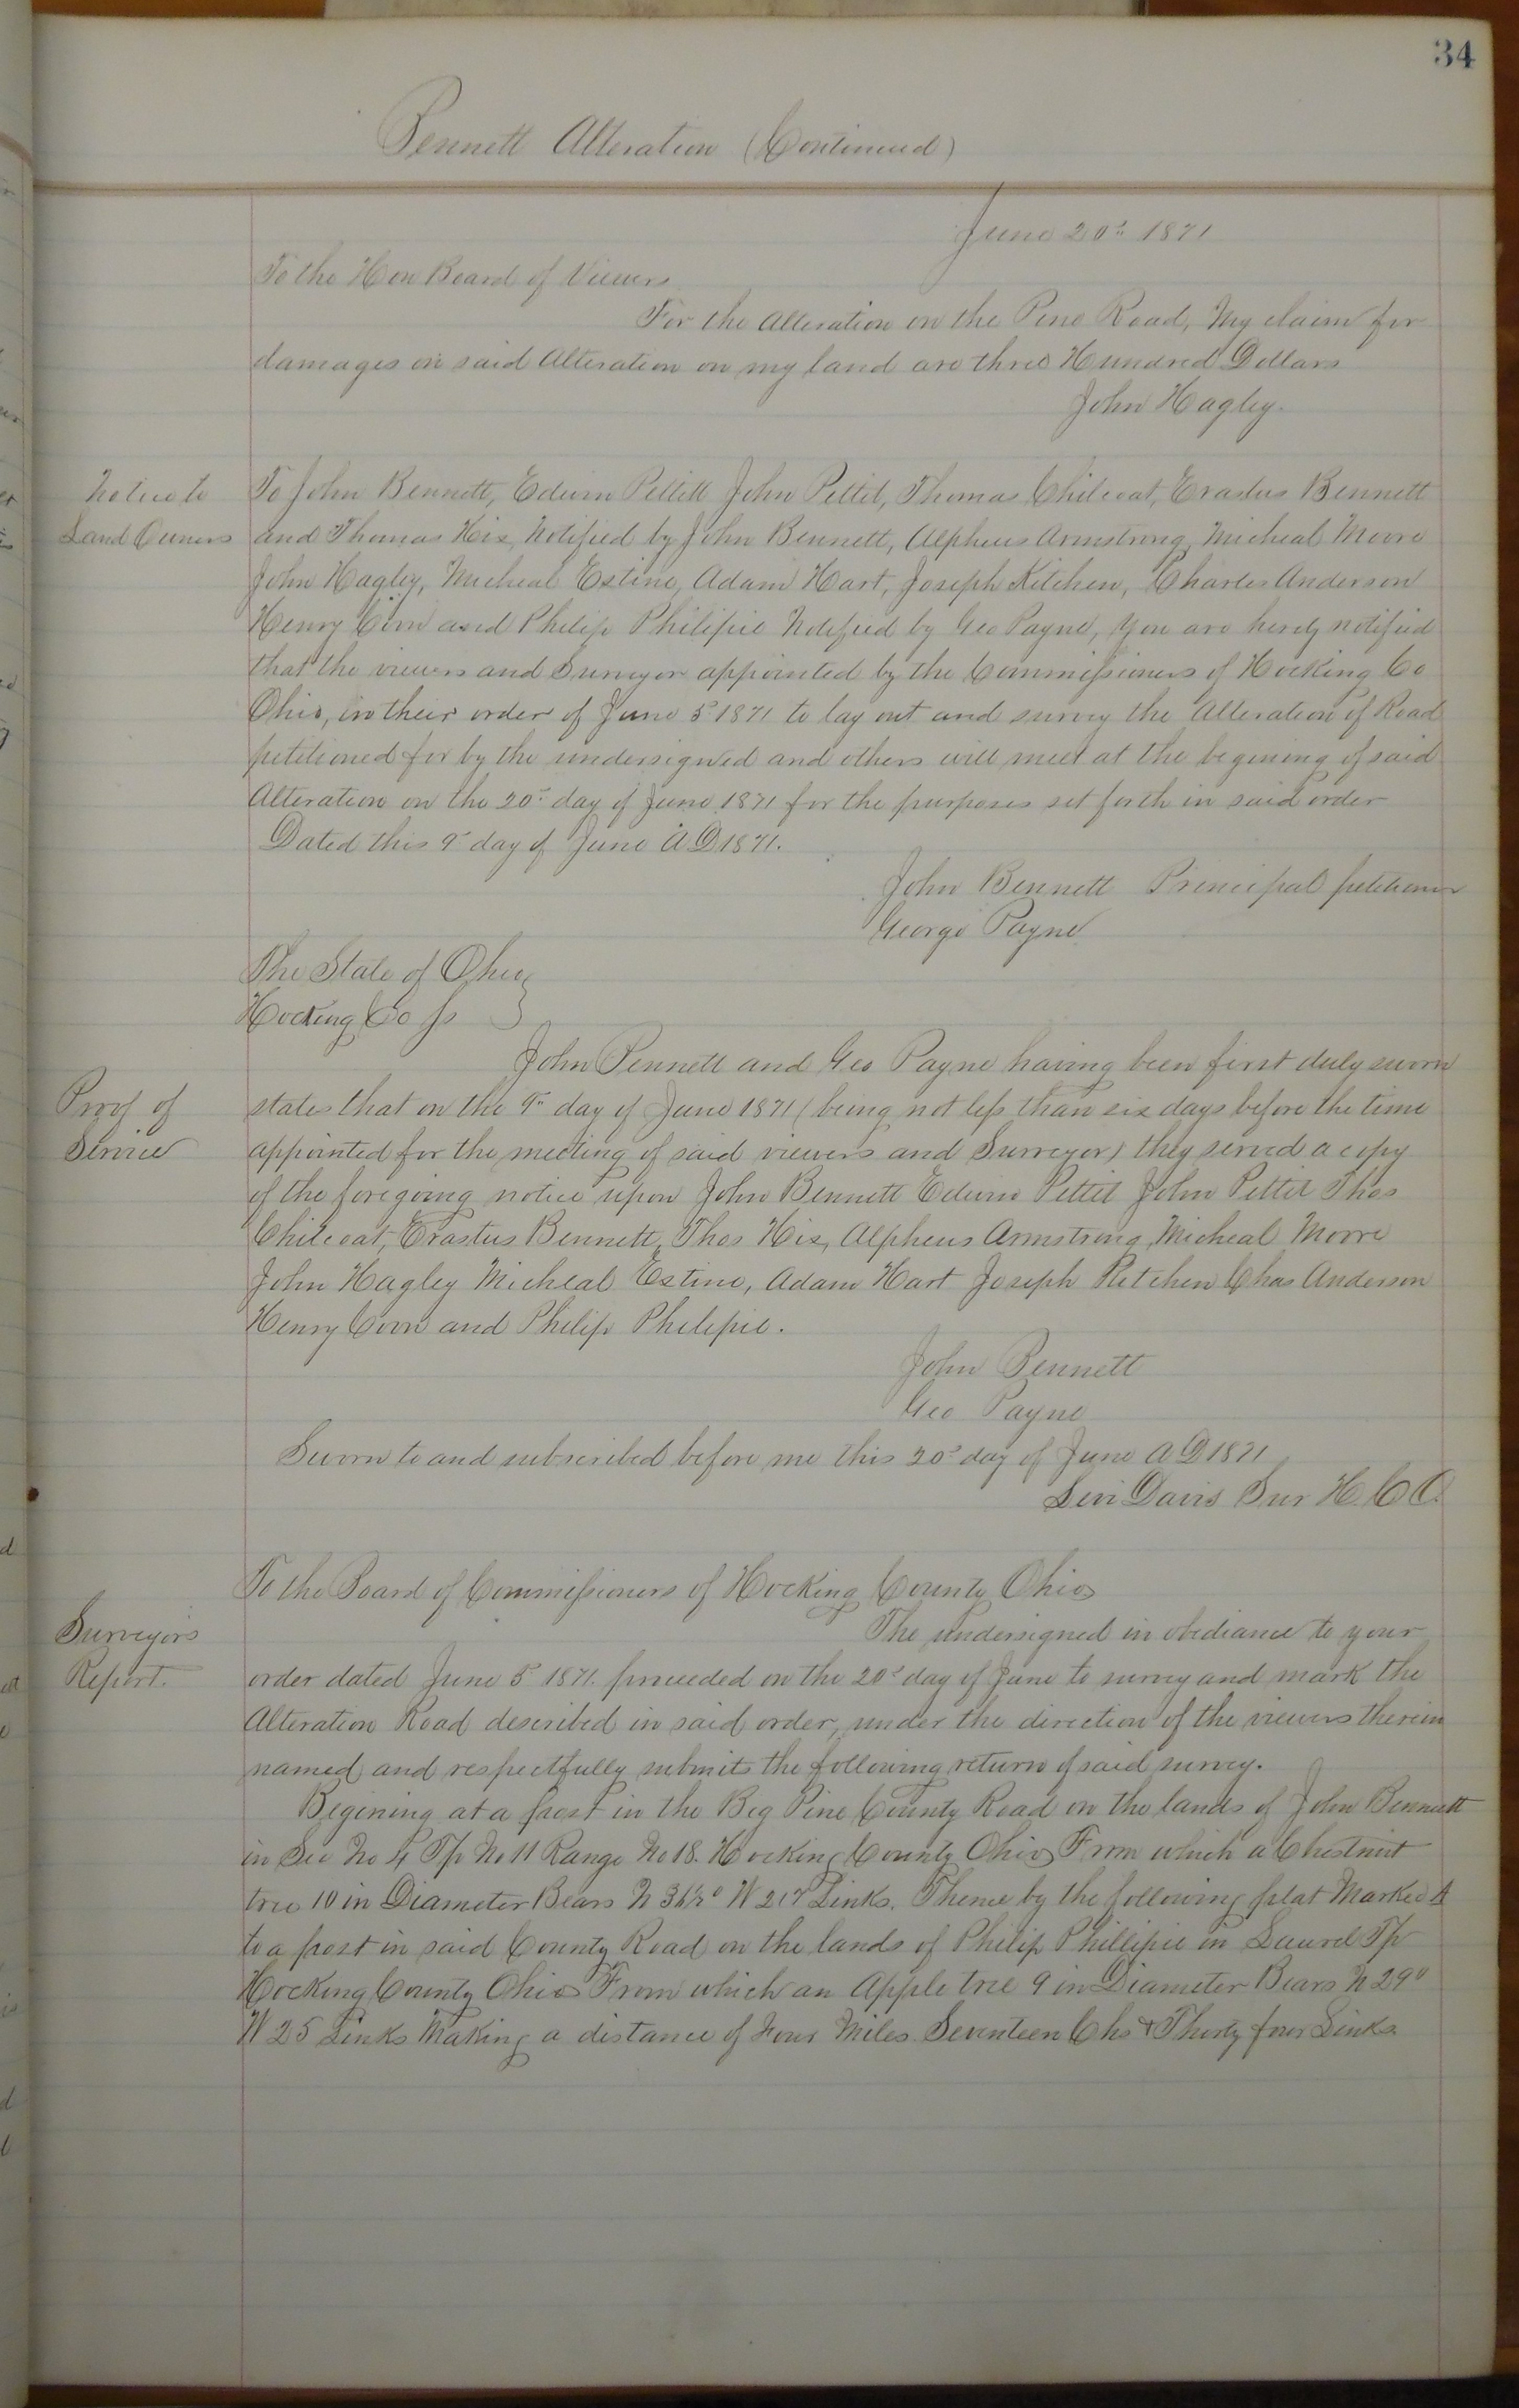 34
Bennett Alteration (Continued)
June 20th 1871
To the Hon Board of Viewers
For the Alteration on the Pine Road, My claim for
damages on said Alteration on my land are three Hundred Dollars
John Hagley.
Notice to
Land Owners
To John Bennett, Edwin Pettitt John Pettit, Thomas Chilcoat, Erastus Bennett
and Thomas Hix, Notified by John Bennett, Alpheus Armstrong, Micheal Moore
John Hagley, Micheal Estine, Adam Hart, Joseph Kitchen, Charles Anderson
Henry Coon and Philip Philipie Notified by Geo Payne, You are herely notified
that the viewers and Surveyor appointed by the Commissioners of Hocking Co
Ohio, in their order of June 5th 1871 to lay out and survey the Alteration of Road
petitioned for by the undersigned and others will meet at the begining of said
Alteration on the 20th day of June 1871 for the purposes set forth in said order
Dated this 9th day of June A D 1871.
John Bennett Principal petitioner
George Payne
The State of Ohio }
Hocking Co ss }
John Bennett and Geo Payne having been first duly sworn
Proof of
Service
states that on the 9th day of June 1871 (being not less than six days before the time
appointed for the meeting of said viewers and Surveyor) they served a copy
of the foregoing notice upon John Bennett Edwin Pettit John Pettit Thos
Chilcoat, Erastus Bennett, Thos Hix, Alpheus Armstrong, Micheal Moore
John Hagley Micheal Estine, Adam Hart Joseph Kitchen Chas Anderson
Henry Coon and Philip Philipie.
John Bennett
Geo Payne
Sworn to and subscribed before me this 20th day of June A D 1871
Levi Davis Sur H. C O.
To the Board of Commissioners of Hocking County Ohio
Surveyors
Report.
The undersigned in obediance to your
order dated June 5th 1871. proceeded on the 20th day of June to survey and mark the
Alteration Road described in said order, under the direction of the viewers therein
named and respectfully submits the following return of said survey.
Begining at a post in the Big Pine County Road on the lands of John Bennett
in Sec No 4 Tp No 11 Range No 18. Hocking County Ohio From which a Chestnut
tree 10 in Diameter Bears N W Links. Thence by the following plat Marked A
to a post in said County Road on the lands of Philip Phillipie in Laurel Tp
Hocking County Ohio From which an Apple tree 9 in Diameter Bears N 29°
W 25 Links Making a distance of Four Miles Seventeen Chs & Thirty four Links.